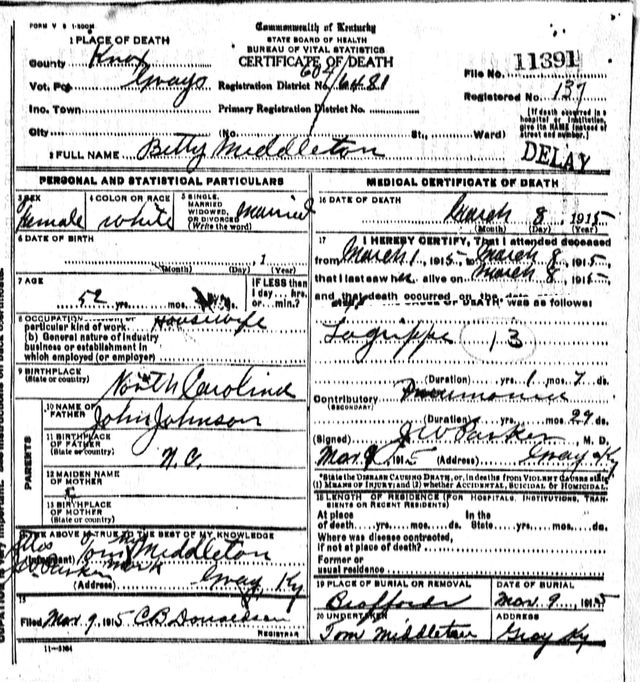 FORM V S 1-500M
Commonwealth of Kentucky
STATE BOARD OF HEALTH
BUREAU OF VITAL STATISTICS
CERTIFICATE OF DEATH
1 PLACE OF DEATH
County Knox
Vot. Pct Grays
Registration District No. 604/6481
File No. 11391
Inc. Town
Primary Registration District No.
Registered No. 137
City (No. St., Ward)
[If death occurred in a hospital or institution, give its NAME instead of street and number.]
2 FULL NAME Betty Middleton
DELAY
PERSONAL AND STATISTICAL PARTICULARS
3 SEX Female
4 COLOR OR RACE White
5 SINGLE, MARRIED WIDOWED, OR DIVORCED (Write the word) Married
6 DATE OF BIRTH
, 1
(Month) (Day) (Year)
7 AGE
52 yrs. mos.
IF LESS than 1 day....hrs. or....min.?
8 OCCUPATION Housewife
particular kind of work
(b) General nature of industry
business or establishment in
which employed (or employer)
9 BIRTHPLACE
(State or country) North Carolina
10 NAME OF FATHER John Johnson
11 BIRTHPLACE OF FATHER
(State or country) N.C.
12 MAIDEN NAME OF MOTHER
13 BIRTHPLACE OF MOTHER
(State or country)
PARENTS
THE ABOVE IS TRUE TO THE BEST OF MY KNOWLEDGE
(Informant) Tom Middleton
mark
(Address) Gray, Ky
15
Filed Mar. 9, 1915 C B Donaldson
REGISTRAR
11-3184
MEDICAL CERTIFICATE OF DEATH
16 DATE OF DEATH
March 8, 1915
(Month) (Day) (Year)
17 I HEREBY CERTIFY, That I attended deceased
from March 1, 1915 to March 8, 1915
that I last saw her alive on March 8, 1915
and that death occurred on the date
OF DEATH was as follows:
Lagrippe 13
(Duration) yrs. 1 mos. 7 ds.
Contributory Pneumonia
(SECONDARY)
(Duration) yrs. mos. 29 ds.
(Signed) J.W. Parker, M. D.
Mar 9, 1915 (Address) Gray Ky
*State the DISEASE CAUSING DEATH, or, in deaths from VIOLENT CAUSES state
(1) MEANS OF INJURY; and (2) whether ACCIDENTAL, SUICIDAL OR HOMICIDAL.
18 LENGTH OF RESIDENCE (FOR HOSPITALS, INSTITUTIONS, TRANSIENTS OR RECENT RESIDENTS)
At place In the
of death....yrs....mos....ds. State....yrs....mos....ds.
Where was disease contracted,
if not at place of death?
Former or
usual residence
19 PLACE OF BURIAL OR REMOVAL
DATE OF BURIAL
Mar. 9, 1915
20 UNDERTAKER
Tom Middleton
ADDRESS
Gray Ky